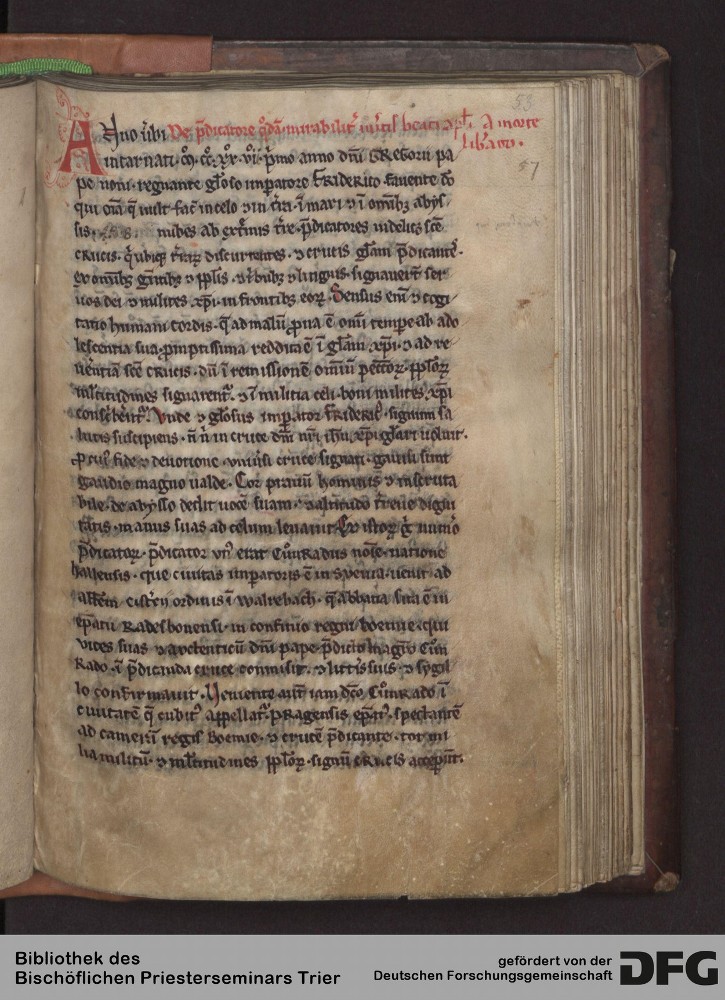 53
Anno ṽbi De p̄dicatore q̄dā mirabilit̾ ũtis beati apl̃i a morte
lib̾ato.
incarnati. M̊. CC̊. XX̊. VI̊. p̾mo anno dñi GREGorii pa
57
pe noni. regnante gl̃oso imperatore FRIDERICo. fauente dõ
qui oīa q̄ uult fac̃ in celo ⁊ in t̃ra. ī mari ⁊ ī omĩbꝫ abys
sis. nubes ab ext̾mis t̾re. p̄dicatores uidelicꝫ sc̃e
crucis. q̾ ubiqꝫ t̾raꝝ discurrentes. ⁊ crucis gl̃am p̄dicante᷒.
ex omĩbꝫ gentibꝫ ⁊ ppl̃is. ⁊ t̾bubꝫ ⁊ linguis. signauer̃t ser
uos dei ⁊ milites xp̃i. in frontibꝫ eoꝝ. Sensus eni̅ ⁊ cogi
tatio humani cordis. que ad malũ prona ē om̃i tempore ab ado
lescentia sua. promptissima reddita ē ī gl̃am xp̃i. ⁊ ad re
uerentia sc̃e crucis. dũ ī remissionē om̃iũ pecc̃oꝝ. ppl̃oꝝ
ml̃titudines signarent᷑. ⁊ ī militia celi. boni milites xp̃i
consc̾berent᷑. Vnde ⁊ gl̃osus imperator FRIDERICꝰ. signum sa
lutis suscipiens. ñ ñ in cruce dñi nr̃i ih̃u xp̃i gl̃ari uoluit.
p̄ cuiꝰ fide ⁊ deuotione. vniũsi cruce signati. gauisi sunt
gaudio magno ualde. Cor prauũ hominis ⁊ inscruta
bile. de abysso dedit uocē suam. ⁊ altitudo t̾rene digni
tatis. manus suas ad celum leauauit. Ex istoꝝ g̾ num̾o
p̄dicatoꝝ. p̄dicator vnꝰ erat CũnRADus noĩe. natione
hallensis. que ciuitas imperatoris ē in SVEVIA. uenit ad
abbēm cist̾cĩi ordinis ī Waltebach. q̄ abbatia sita ē in
ep̃atu RADesbonensi. in confinio regni boemie. qui
vices suas ⁊ auctenticũ dñi pape. p̄dicto mag̃ro Cũn
RADo. ī p̄dicanda cruce commisit. ⁊ litt̾is suis. ⁊ sygil
lo confirmauit. Veniente aut̃ iam dc̃o CũnRADo ī
ciuitatē q̄ cubitꝰ appellat᷑. pRAgensis ep̃atꝰ. spectantē
ad camerā regis boemie. ⁊ crucē p̄dicante. tot mi
lia militũ. ⁊ ml̃titudines ppl̃oꝝ. signũ cRucis acceper̃t.
Bibliothek des
Bischöflichen Priesterseminars Trier
gefördert von der
Deutschen Forschungsgemeinschaft
DFG